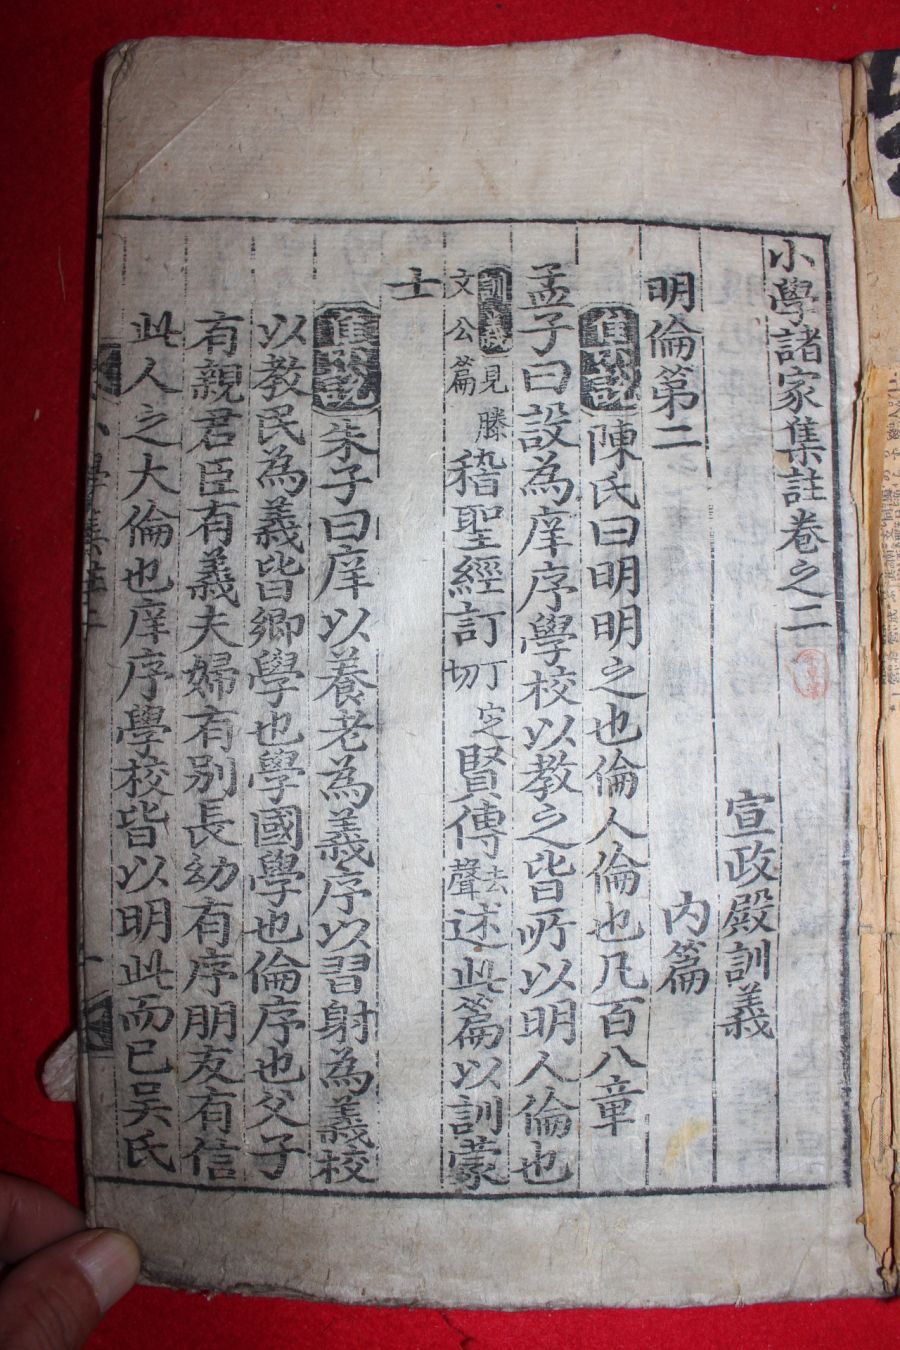 小學諸家集註卷之二
宣政殿訓義
明倫第二
內篇
集說陳氏曰明明之也倫人倫也凡百八章
孟子曰設為庠序學校以教之皆所以明人倫也
訓義見滕文公篇稽聖經訂丁定切賢傳去聲述此篇以訓蒙
士
集說朱子曰庠以養老為義序以習射為義校
以教民為義皆鄉學也學國學也倫序也父子
有親君臣有義夫婦有別長幼有序朋友有信
此人之大倫也庠序學校皆以明此而已吳氏